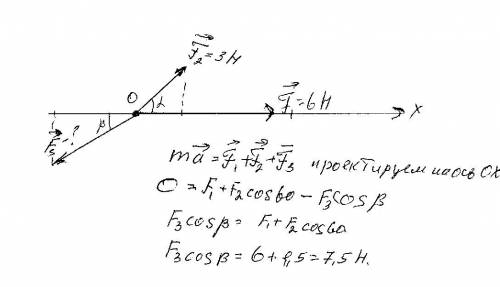 F₂=3H
O
α
F₁=6H
X
β
F₃-?
ma=F₁+F₂+F₃ проектируем на ось OX
O=F₁+F₂cos60-F₃cosβ
F₃cosβ= F₁+F₂cos60
F₃cosβ=6+1,5=7,5H.